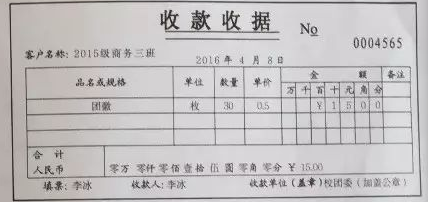 收款收据 No
0004565
客户名称: 2015级商务三班
2016 年 4 月 8 日
品名或规格 单位 数量 单价 金 额 备注
万 千 百 十 元 角 分
团徽 枚 30 0.5 ¥ 1 5 0 0
合 计
人民币 零万 零仟 零佰 壹拾 伍 圆 零角 零分 ¥ 15.00
填票: 李冰 收款人: 李冰 收款单位(盖章)校团委(加盖公章)